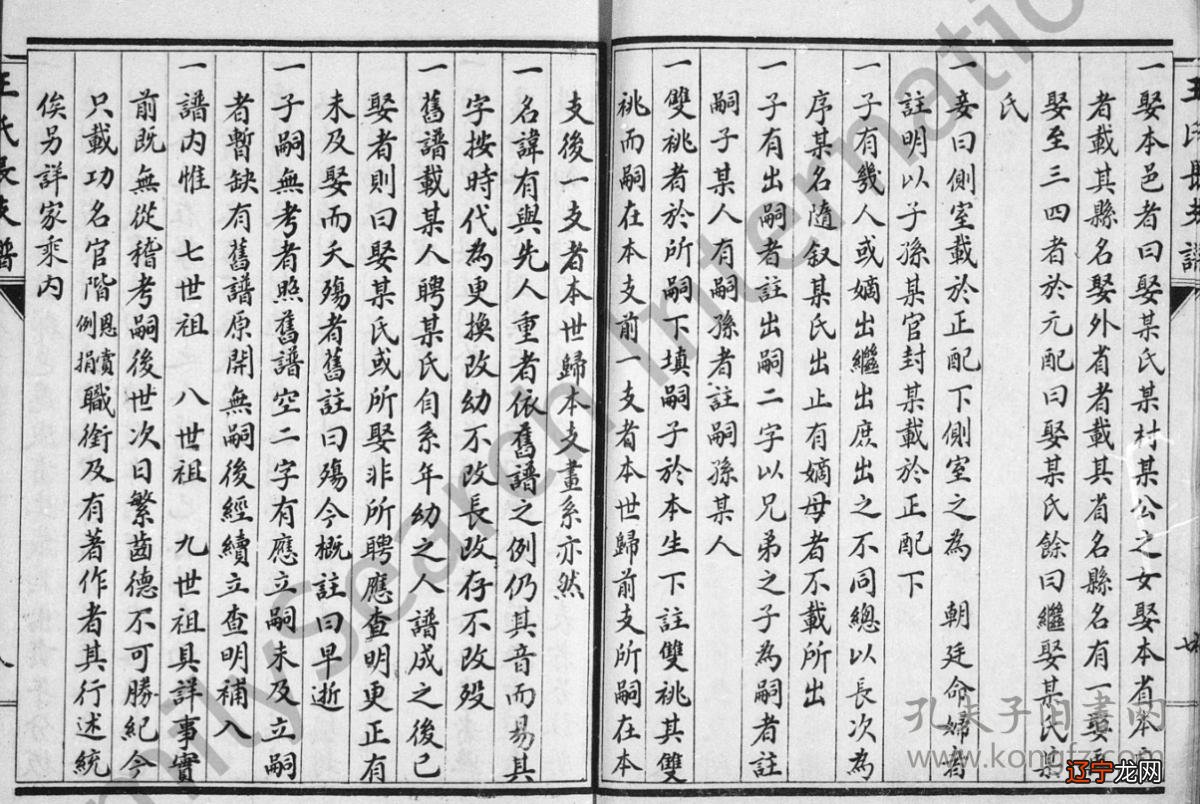 一娶本邑者曰娶某氏某村某公之女娶本省
者載其縣名娶外省者載其省名縣名有一娶再
娶至三四者於元配曰娶某氏餘曰繼娶某氏某
氏
一妾曰側室載於正配下側室之為 朝廷命婦者
註明以子孫某官封某載於正配下
一子有幾人或嫡出繼出庶出之不同總以長次為
序某名隨叙某氏出止有嫡母者不載所出
一子有出嗣者註出嗣二字以兄弟之子為嗣者註
嗣子某人有嗣孫者註嗣孫某人
一雙祧者於所嗣下填嗣子於本生下註雙祧其雙
祧而嗣在本支前一支者本世歸前支所嗣在本
支後一支者本世歸本支畫系亦然
一名諱有與先人重者依舊譜之例仍其音而易其
字按時代為更換改幼不改長改存不改歿
一舊譜載某人聘某氏自系年幼之人譜成之後已
娶者則曰娶某氏或所娶非所聘應查明更正有
未及娶而夭殤者舊註曰殤今概註曰早逝
一子嗣無考者照舊譜空二字有應立嗣未及立嗣
者暫缺有舊譜原開無嗣後經續立查明補入
一譜內惟 七世祖 八世祖 九世祖具詳事實
前既無從稽考嗣後世次日繁齒德不可勝紀今
只載功名官階恩賞例捐職銜及有著作者其行述統
俟另詳家乘內
王氏
譜
孔夫子旧书网
www.kongfz.com
辽宁龙网
FamilySearch International